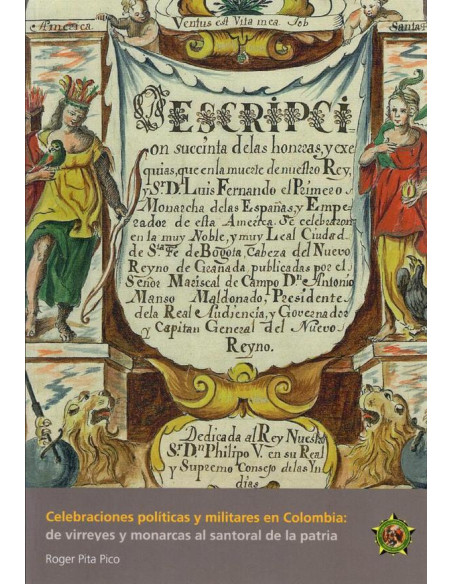 Ventus est Vita mea. Job
America.
Santa
DESCRIPCI
on succinta de las honrras, y exe
quias, que en la muerte de nuestro Rey,
y Sr. Dn. Luis Fernando el Primero
Monarcha de las Españas, y Empe
rador de esta America. Se celebraron
en la muy Noble, y muy Leal Ciudad
de Sta. Fe de Bogota, Cabeza del Nuevo
Reyno de Granada, publicadas por el
Señor Mariscal de Campo Dn. Antonio
Manso Maldonado, Presidente
de la Real Audiencia, y Governador
y Capitan General del Nuevo
Reyno.
Dedicada al Rey Nuestro
Sr. Dn. Philipo V. en su Real
y Supremo Consejo de las Yn
dias
Celebraciones políticas y militares en Colombia:
de virreyes y monarcas al santoral de la patria
Roger Pita Pico